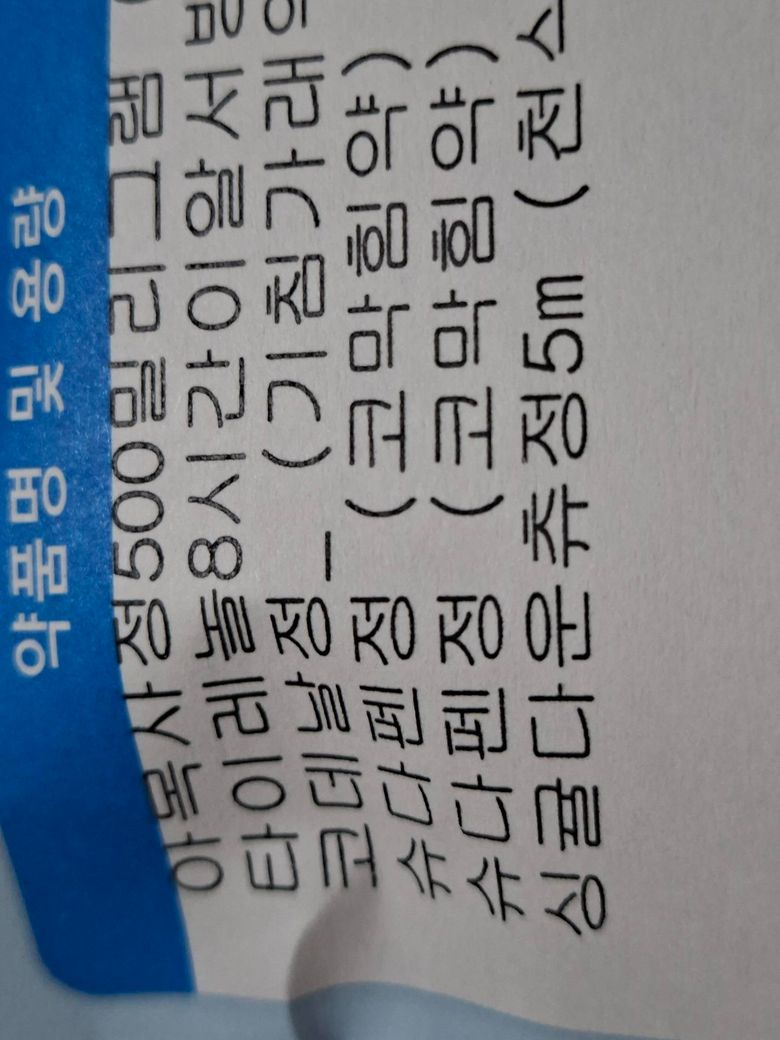 약품명 및 용량
아목사정500밀리그램 (
타이레놀8시간이알서방
코데날정_ (기침가래의
슈다펜정 (코막힘약)
슈다펜정 (코막힘약)
싱귤다운츄정5m (천스